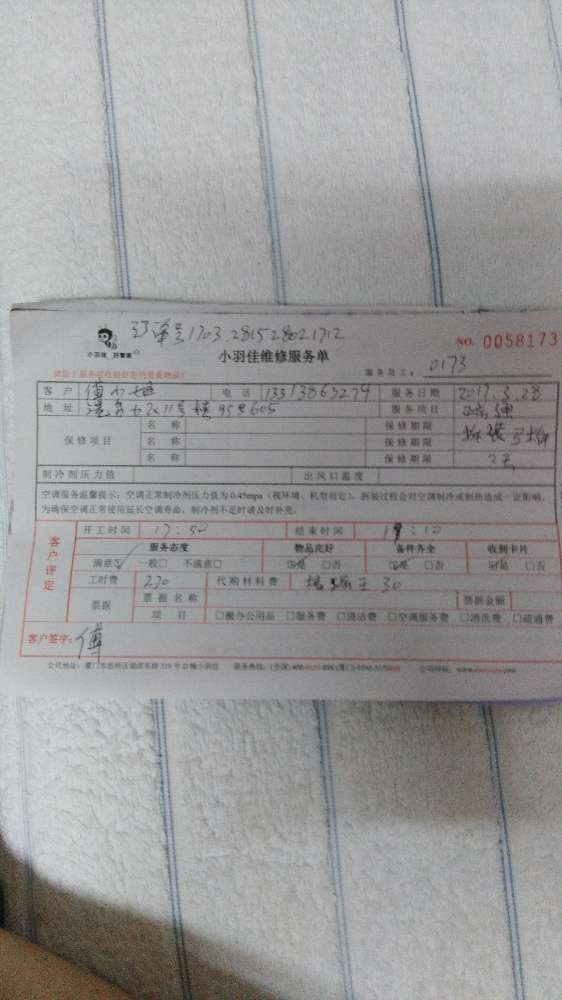 订单号1703281528021712
小羽佳 好管家
小羽佳维修服务单
NO. 0058173
服务员工： 0173
客户 傅小姐 电话 13313865279 服务日期 2017.3.28
地址 服务项目
保修项目 名称 保修期限
名称 保修期限
名称 保修期限
制冷剂压力值 出风口温度
空调服务温馨提示：空调正常制冷剂压力值为0.45mpa（视环境、机型而定）。拆装过程会对空调制冷或制热造成一定影响，
为确保空调正常使用延长空调寿命，制冷剂不足时请及时补充。
客户评定
开工时间 17:50 结束时间 19:10
服务态度 物品完好 备件齐全 收到卡片
满意☑ 一般□ 不满意□ ☑是 □否 ☑是 □否 ☑是 □否
工时费 270 代购材料费 30
票据 票据名称 票据金额
项目 □搬办公用品 □服务费 □清洁费 □空调服务费 □清洗费 □疏通费
客户签字： 傅